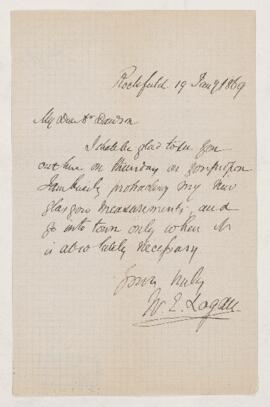 Rockfield 19 Jany 1869
My Dear Dr Dawson
I shall be glad to see you
out here on Thursday as you propose
I am busily protracting my New
Glasgow measurements and
go into town only when it
is absolutely necessary
Yours truly
W. E. Logan